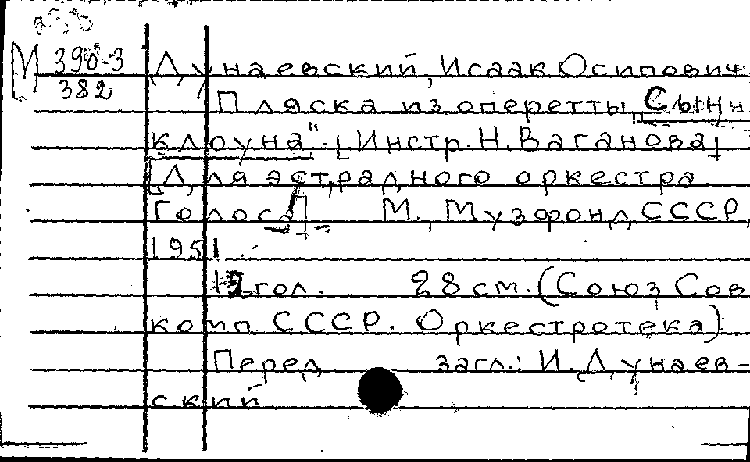 М 390-3
382
Дунаевский, Исаак Осипович
Пляска из оперетты „Сын
клоуна". [Инстр. Н. Ваганова]
[Для эстрадного оркестра
Голоса] М., Музфонд СССР,
1951
гол. 28 см. (Союз Сов
комп СССР. Оркестротека)
Перед загл.: И. Дунаев-
ский